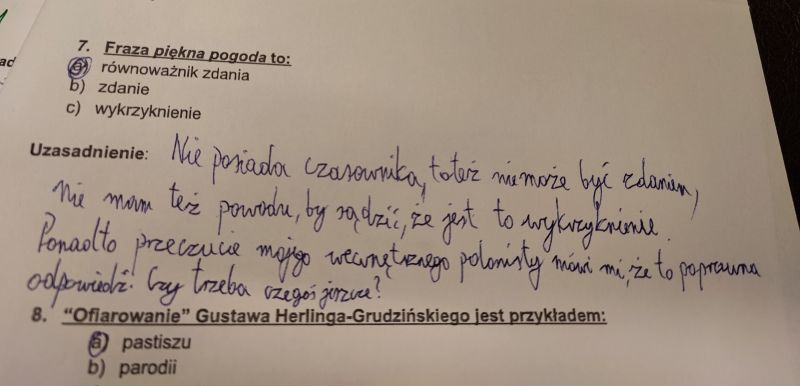 ad
7. Fraza piękna pogoda to:
a) równoważnik zdania
b) zdanie
c) wykrzyknienie
Uzasadnienie: Nie posiada czasownika, toteż nie może być zdaniem,
nie mam też powodu, by sądzić, że jest to wykrzyknienie.
Ponadto przeczucie mojego wewnętrznego polonisty mówi mi, że to poprawna
odpowiedź. Czy trzeba czegoś jeszcze?
8. "Ofiarowanie" Gustawa Herlinga-Grudzińskiego jest przykładem:
a) pastiszu
b) parodii